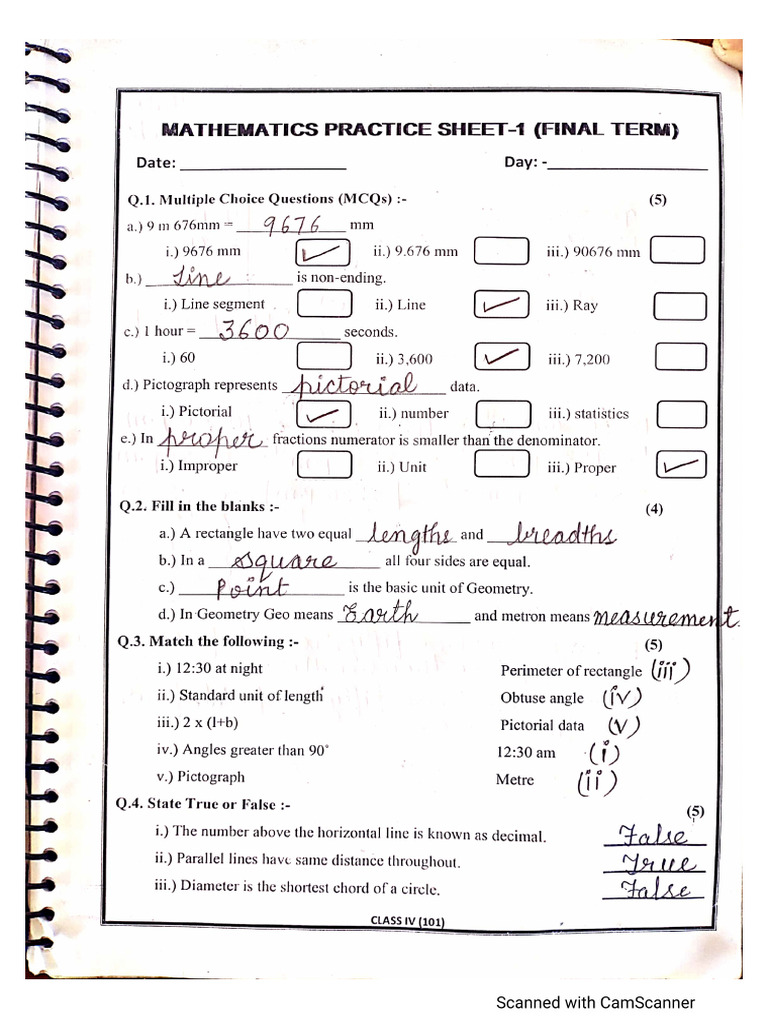 MATHEMATICS PRACTICE SHEET-1 (FINAL TERM)
Date: ____________________ Day: -____________________
Q.1. Multiple Choice Questions (MCQs) :- (5)
a.) 9 m 676mm = 9676 mm
i.) 9676 mm ✓ ii.) 9.676 mm iii.) 90676 mm
b.) Line is non-ending.
i.) Line segment ii.) Line ✓ iii.) Ray
c.) 1 hour = 3600 seconds.
i.) 60 ii.) 3,600 ✓ iii.) 7,200
d.) Pictograph represents pictorial data.
i.) Pictorial ✓ ii.) number iii.) statistics
e.) In proper fractions numerator is smaller than the denominator.
i.) Improper ii.) Unit iii.) Proper ✓
Q.2. Fill in the blanks :- (4)
a.) A rectangle have two equal lengths and breadths
b.) In a square all four sides are equal.
c.) Point is the basic unit of Geometry.
d.) In Geometry Geo means Earth and metron means measurement.
Q.3. Match the following :- (5)
i.) 12:30 at night Perimeter of rectangle (iii)
ii.) Standard unit of length Obtuse angle (iv)
iii.) 2 x (l+b) Pictorial data (v)
iv.) Angles greater than 90° 12:30 am (i)
v.) Pictograph Metre (ii)
Q.4. State True or False :- (5)
i.) The number above the horizontal line is known as decimal. False
ii.) Parallel lines have same distance throughout. True
iii.) Diameter is the shortest chord of a circle. False
CLASS IV (101)
Scanned with CamScanner